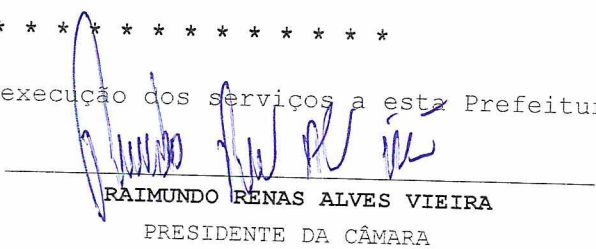 * * * * * * * * * * * * *
execução dos serviços a esta Prefeitur
RAIMUNDO RENAS ALVES VIEIRA
PRESIDENTE DA CÂMARA